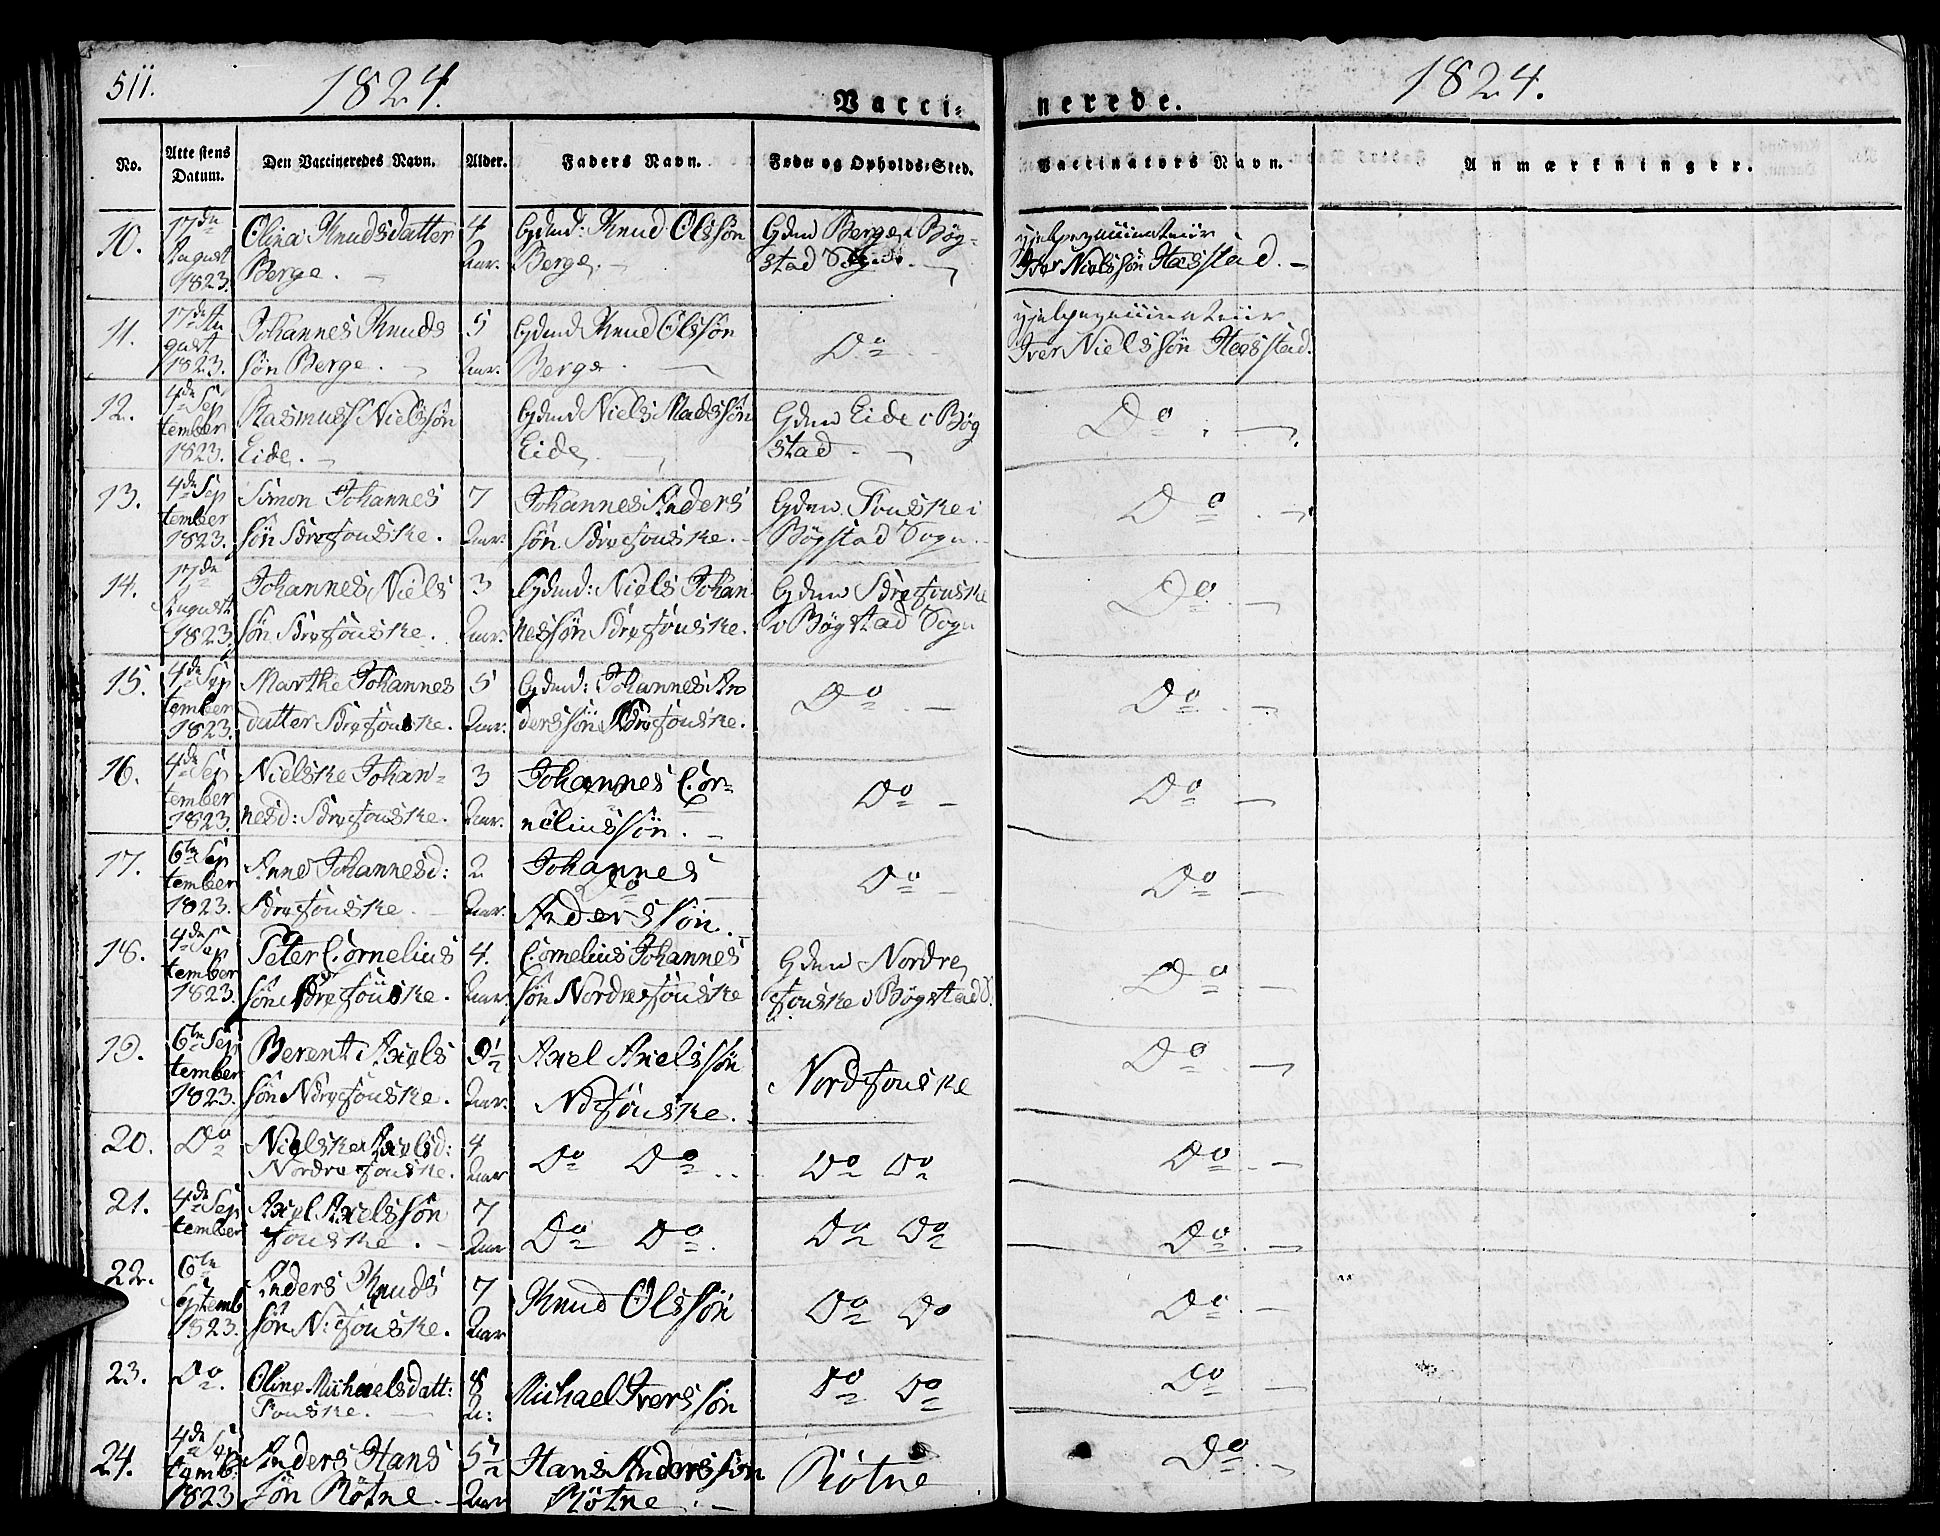 511.
1824.
Vacci-
nerede.
1824.
No.
Attestens Datum.
Den Vaccineredes Navn.
Alder.
Faders Navn.
Føde og Opholds-Sted.
Vaccinators Navn.
Anmærkninger.
10. 17de August 1823.
Olina Knudsdatter
Berge.
4 Aar.
Gdmd: Knud Olssøn
Berge.
Gden Berge i Bøg-
stad Sogn.
Iver Nielssøn Hæsstad.
11. 17de Au
gust
1823.
Johannes Knuds
søn Berge.
5 Aar.
Gdmd Knud Olssøn
Berge
Do
Iver Nielssøn Hæsstad.
12. 4de Sep
tember
1823.
Rasmus Nielssøn
Eide.
Gdmd Niels Madssøn
Eide
Gden Eide i Bøg
stad
Do
13. 4de Sep
tember
1823.
Simon Johannes
søn Sdrefouske.
7 Aar.
Johannes Anders
søn Sdrefouske.
Gden Fouske i
Bøgstad Sogn.
Do
14. 17de
August
1823
Johannes Niels
søn Sdrefouske.
3 Aar.
Gdmd: Niels Johan
nessøn Sdrefouske.
Gden Sdrefouske
i Bøgstad Sogn
Do
15. 4de Sep
tember
1823.
Marthe Johannes
datter Sdrefouske.
5 Aar.
Gdmd: Johannes An
derssøn Sdrefouske.
Do
Do
16. 4de Sep
tember
1823.
Nielske Johan-
nesd: Sdrefouske.
3 Aar.
Johannes Cor-
neliussøn.
Do
Do
17. 6te Sep
tember
1823.
Anne Johannesd:
Sdrefouske.
2 Aar.
Johannes
Anderssøn.
Do
Do
18. 4de Sep
tember
1823.
Peter Cornelius
søn Sdrefouske.
4. Aar.
Cornelius Johannes
søn Nordrefouske
Gden Nordre
fouske i Bøgstad S.
Do
19. 6te Sep
tember
1823.
Berent Axels
søn Ndrefouske.
Aar.
Axel Axelssøn
Ndfouske.
Nordfouske
Do
20. Do
Nielske Axelsd:
Nordre fouske.
4 Aar
Do Do
Do Do
Do
21. 4de Sep
tember
Axel Axelssøn
fouske.
7 Aar
Do Do.
Do Do
Do
22. 6te
Septemb
1823.
Anders Knuds
søn Ndfouske.
7 Aar
Knud Olssøn
Do Do
Do
23. Do.
Oline Michaelsdatt:
Fouske.
8 A:
Michael Iverssøn
Do Do
Do
24. 4de Sep
temb:
1823
Anders Hans
søn Røtne.
5 1/2 Aar
Hans Anderssøn
Røtne
Røtne
Do